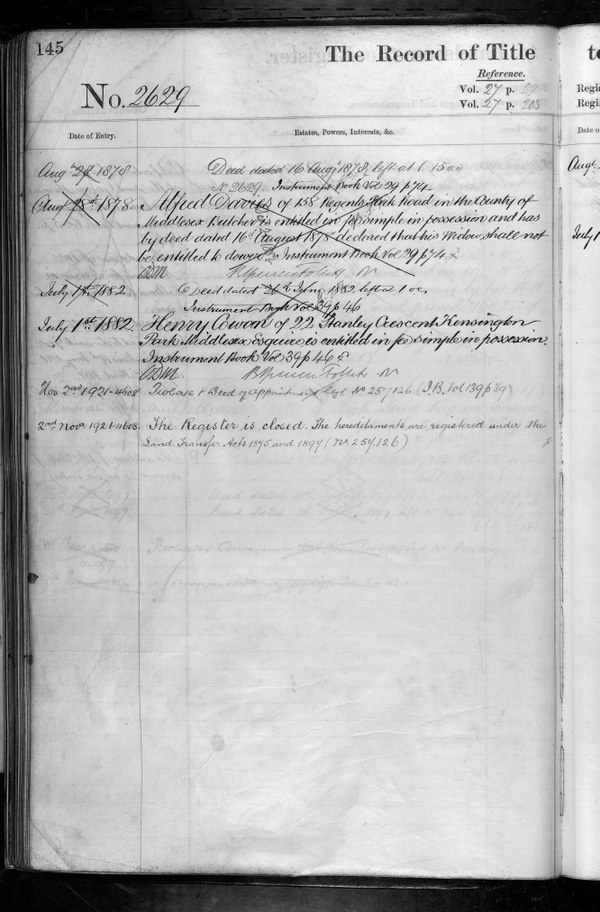 145
The Record of Title
Reference.
No. 2629
Vol. 27 p.
Vol. 27 p. 203
Date of Entry.
Estates, Powers, Interests, &c.
Aug 1878 Deed dated 16 Augt 1878, left at 1
No 2629. Instrument Book Vol 29 p 74
Augt 1878 Alfred Davies of 158 Regents Park Road in the County of
Middlesex Butcher is entitled in fee simple in possession and has
by deed dated 16th August 1878 declared that his Widow shall not
be entitled to dower Instrument Book Vol 29 p 74
July 1st 1882 Deed dated June 1882 left at 1 oc
Instrument Book Vol 39 p 46
July 1st 1882. Henry Cowan of 22 Stanley Crescent Kensington
Park Middlesex Esquire is entitled in fee simple in possession.
Instrument Book Vol 39 p 46
Nov 2nd 1921 & Deed of appointment No 257126 (I.B. Vol 139 p 39)
2nd Novr 1921 The Register is closed. The hereditaments are registered under the
Land Transfer Acts 1875 and 1897 (No 257,126)
to
Regi
Regi
Date o
Aug
July 1